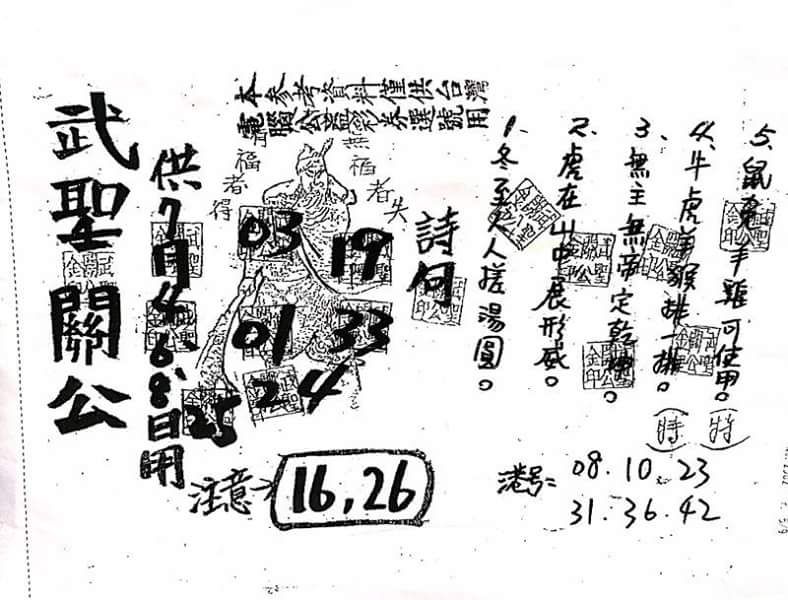 本參考資料僅供台灣
電腦公益彩券選號用
武聖關公
供7月4、6、8、日用
有福者得
無福者失
03 19
01 33
24
25
注意→ 16,26
詩句
1、冬至人人搓湯圓。
2、虎在山中展形威。
3、無主無帝定乾坤。
4、牛虎羊猴排一排。(特)
5、鼠兔羊雞可使用。(特)
港号= 08.10.23
31.36.42